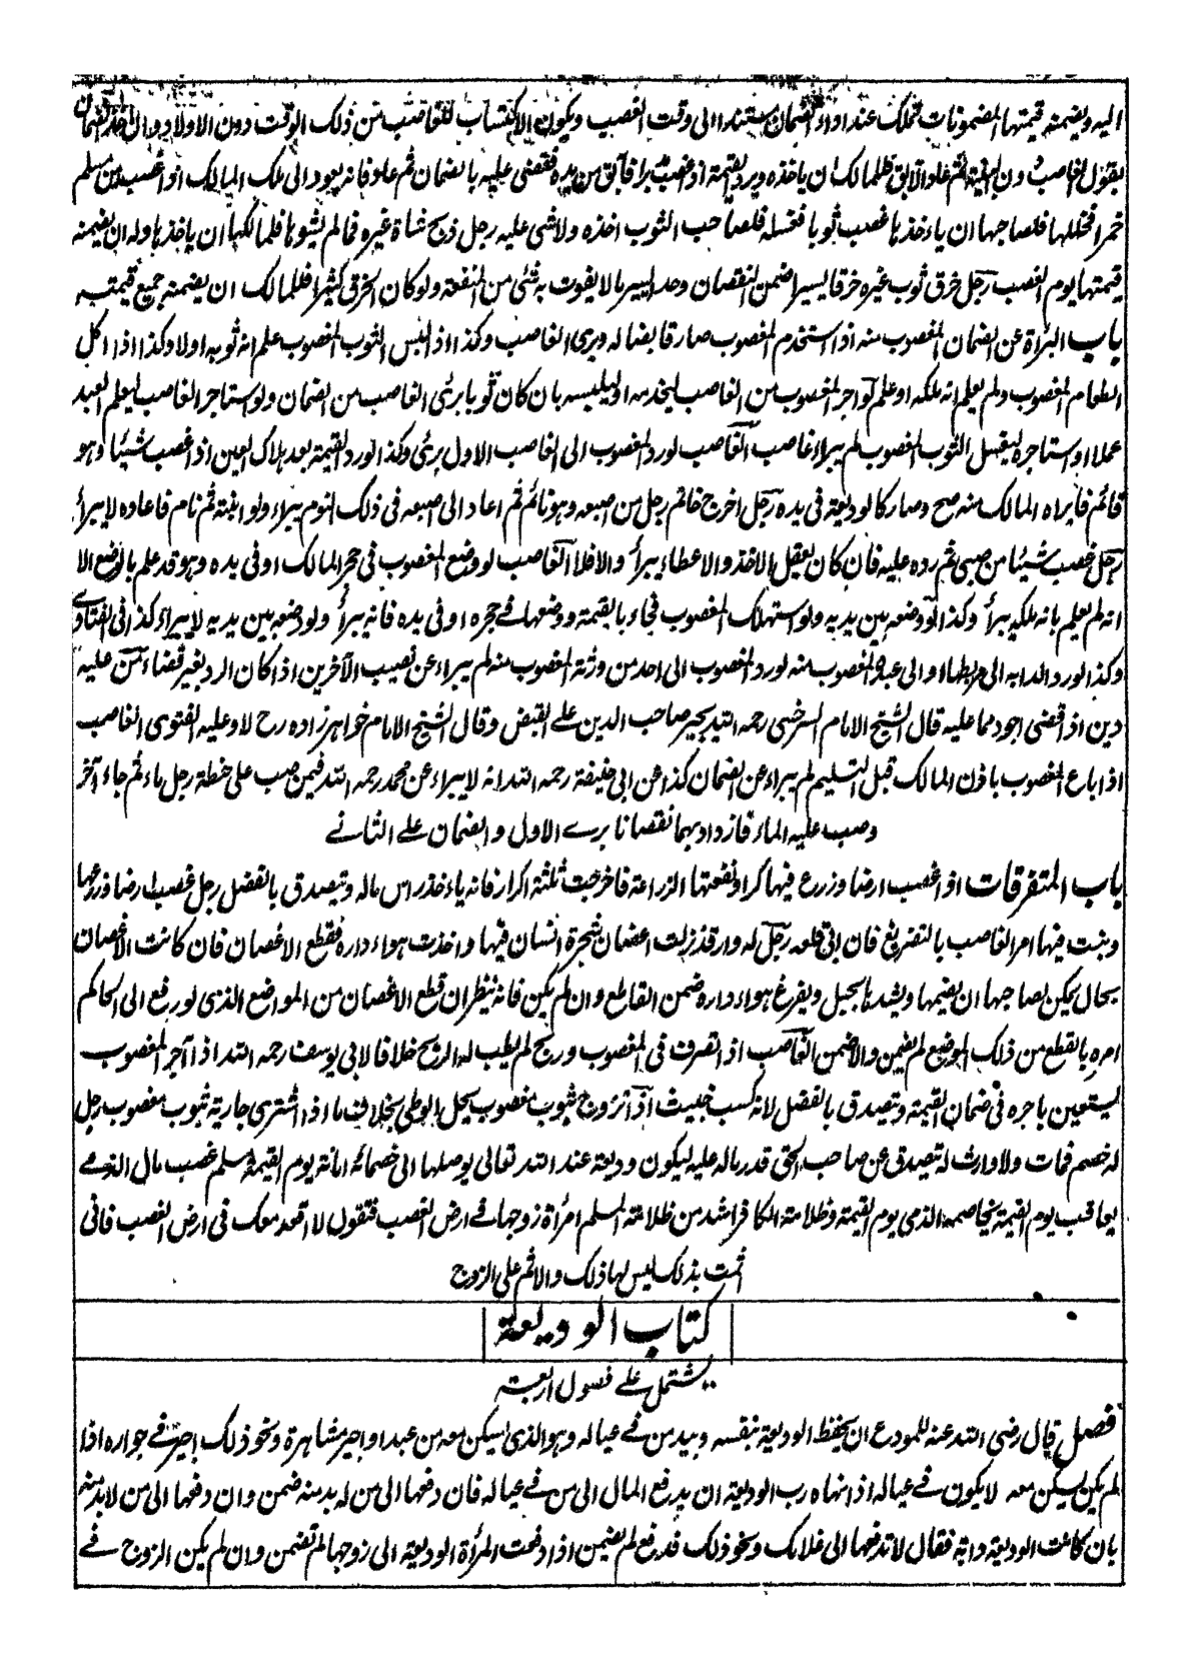 اليه ويضمنه قيمتها المضمونات تملك عند اداء الضمان مستندا الى وقت الغصب ويكون الاكتساب للغاصب من ذلك الوقت دون الاولاد
بقول الغاصب ثم عاد الابق فللمالك ان ياخذه ويرد القيمة اذا غصب فابق من يده فقضى عليه بالضمان ثم عاد فانه يعود الى ملك المالك اذا غصب من مسلم
خمرا فخللها فلصاحبها ان ياخذها غصب ثوبا فغسله فلصاحب الثوب اخذه ولا شئ عليه رجل ذبح شاة غيره فما لم يشوها فلمالكها ان ياخذها وله ان يضمنه
قيمتها يوم الغصب رجل خرق ثوب غيره خرقا يسيرا ضمن النقصان وحد اليسير ما لا يفوت به شئ من المنفعة ولو كان الخرق كثيرا فللمالك ان يضمنه جميع قيمته
باب البراة عن الضمان المغصوب منه اذا استخدم المغصوب صار قابضا له وبرئ الغاصب وكذا اذا لبس الثوب المغصوب علم انه ثوبه اولا وكذا اذا اكل
الطعام المغصوب ولم يعلم انه ملكه او علم لو آجر المغصوب من الغاصب ليخدمه او ليلبسه بان كان ثوبا برئ الغاصب من الضمان ولو استاجر الغاصب ليعلم العبد
عملا او استاجره ليغسل الثوب المغصوب لم يبراء غاصب الغاصب لو رد المغصوب الى الغاصب الاول برئ وكذا لو رد القيمة بعد هلاك العين اذا غصب شيئا وهو
قائم فابراه المالك منه صح وصار كالوديعة فى يده رجل اخرج خاتم رجل من اصبعه وهو نائم ثم اعاد الى اصبعه فى ذلك النوم يبراء ولو انتبه ثم نام فاعاده لا يبرأ
رجل غصب شيئا من صبى ثم رده عليه فان كان يعقل الاخذ والاعطاء يبرأ والا فلا الغاصب لو وضع المغصوب فى حجر المالك او فى يده وهو قد علم بالوضع الا
انه لم يعلم بانه ملكه يبرأ وكذا لو وضعه بين يديه ولو استهلك المغصوب فجاء بالقيمة ووضعها فے حجره او فى يده فانه يبرأ ولو وضعه بين يديه لا يبراء كذا فى الفتاوے
وكذا لو رد الدابه الى مربطها او الى عبد المغصوب منه لو رد المغصوب الى احد من ورثة المغصوب منه لم يبراء عن نصيب الآخرين اذا كان الرد بغير قضاء من عليه
دين اذا قضى اجود مما عليه قال الشيخ الامام السرخسى رحمه الله يجبر صاحب الدين على القبض وقال الشيخ الامام خواهر زاده رح لا وعليه الفتوى الغاصب
اذا باع المغصوب باذن المالك قبل التسليم لم يبراء عن الضمان كذا عن ابى حنيفة رحمه الله انه لا يبراء عن محمد رحمه الله فيمن صب على حنطة رجل ماء ثم جاء آخر
وصب عليه الماء فازداد بهما نقصانا برے الاول والضمان على الثانے
باب المتفرقات اذا غصب ارضا وزرع فيها كرا ونفعتها الزراعة فاخرجت ثلثة اكرار فانه ياخذ راس ماله ويتصدق بالفضل رجل غصب ارضا فزرعها
ونبت فيها امر الغاصب بالتفريغ فان ابى قلعه رجل له دار قد تدلت اغصان شجرة انسان فيها واخذت هواء داره فقطع الاغصان فان كانت الاغصان
بحال يمكن لصاحبها ان يضمها ويشدها بحبل ويفرغ هواء داره ضمن القاطع وان لم يكن فانه ينظر ان قطع الاغصان من المواضع الذى لو رفع الى الحاكم
امره بالقطع من ذلك الموضع لم يضمن والا ضمن الغاصب اذا تصرف فى المغصوب وربح لم يطب له الربح خلافا لابى يوسف رحمه الله اذا آجر المغصوب
يستعين باجره فى ضمان القيمة ويتصدق بالفضل لانه كسب خبيث اذا تزوج بثوب مغصوب يحل الوطى بخلاف ما اذا اشترى جارية بثوب مغصوب رجل
له خصم فمات ولا وارث له تصدق عن صاحب الحق قدر ماله عليه ليكون وديعة عند الله تعالى يوصلها الى خصمائه يوم القيمة مسلم غصب مال الذمے
يعاقب يوم القيمة يخاصمه الذمى يوم القيمة وظلامة الكافر اشد من ظلامة المسلم امرأة زوجها فے ارض الغصب فتقول لا اقعد معك فى ارض الغصب فانى
اثمت بذلك ليس لها ذلك والاثم على الزوج
كتاب الوديعة
يشتمل على فصول اربعة
فصل قال رضى الله عنه للمودع ان يحفظ الوديعة بنفسه وبيد من فے عياله وهو الذى يسكن معه من عبد او اجير مشاهرة ونحو ذلك اجير فے جواره اذا
لم يكن يسكن معه لا يكون فے عياله اذا نهاه رب الوديعة ان يدفع المال الى من فے عياله فان دفعها الى من له بد منه ضمن وان دفعها الى من لا بد منه
بان كانت الوديعة دابة فقال لا تدفعها الى غلامك ونحو ذلك فدفع لم يضمن اذا دفعت المرأة الوديعة الى زوجها لم تضمن وان لم يكن الزوج فے